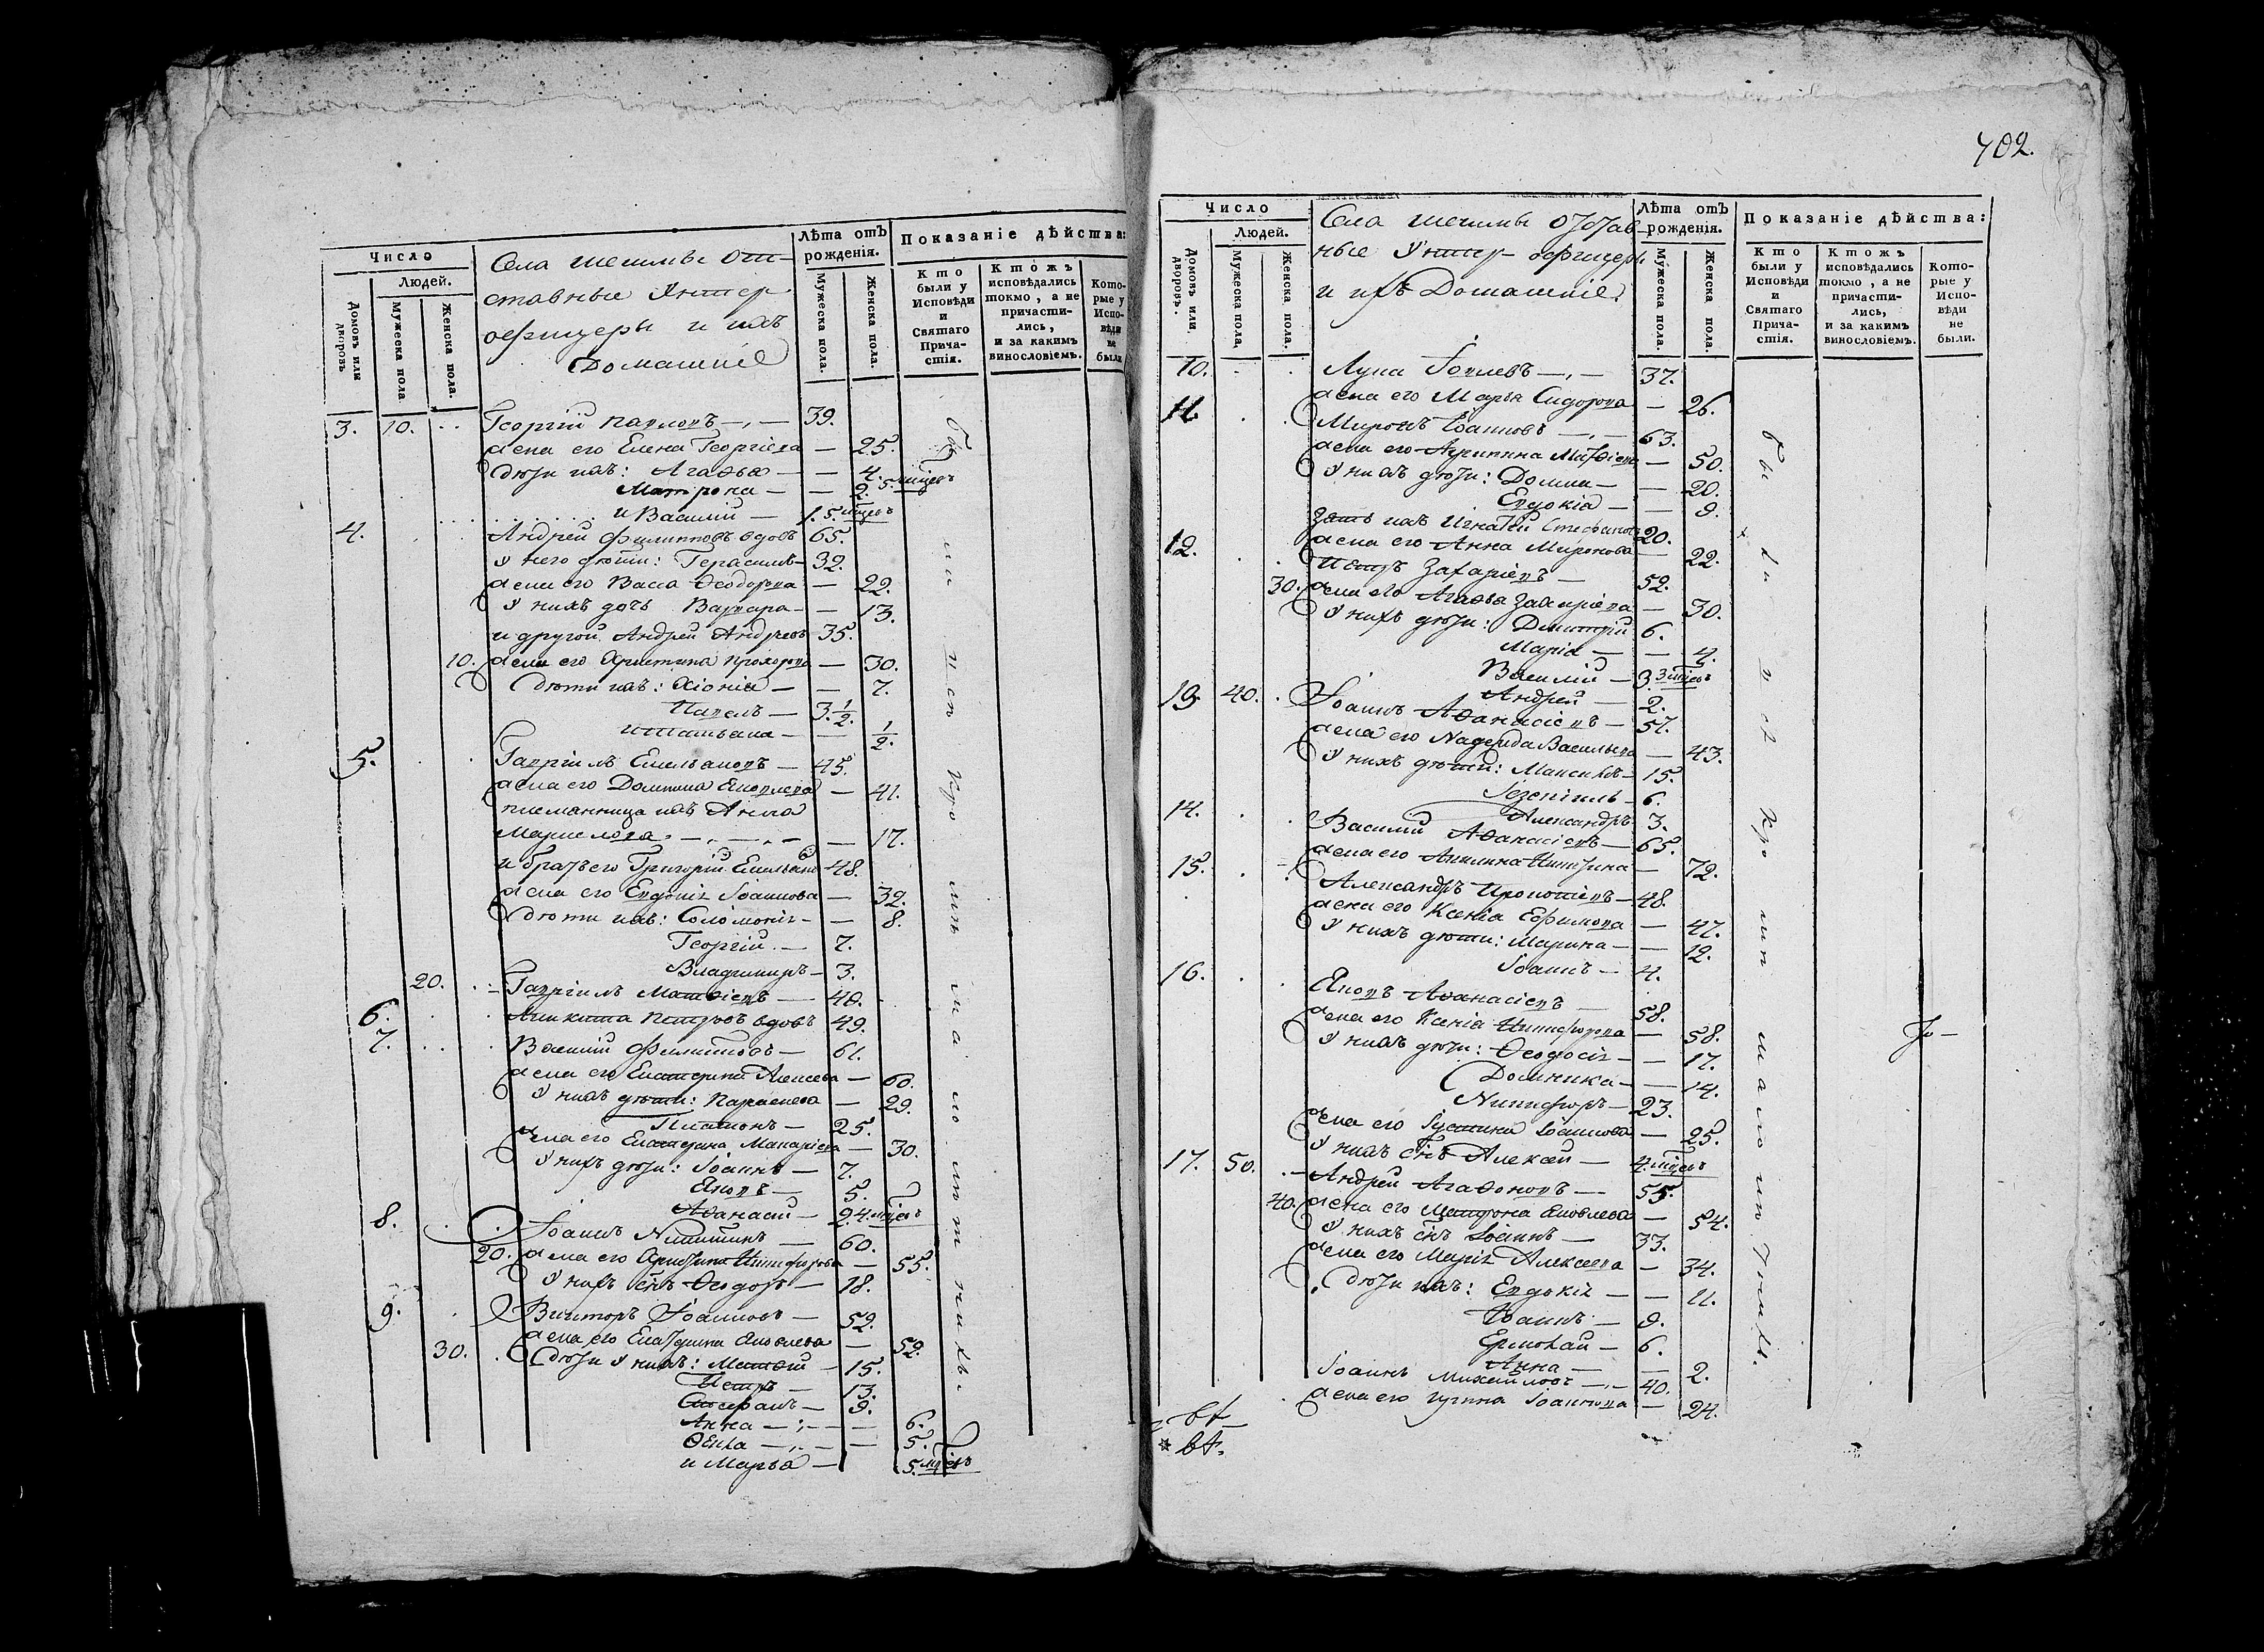 Число
Людей.
Домовъ или дворовъ
Мужеска пола
Женска пола.
Села Шешмы От-
ставные Унтер
офицеры и ихъ
Домашніе
Лѣта отъ рожденія.
Мужеска пола.
Женска пола.
Показаніе дѣйства:
Кто были у Исповѣди и Святаго Прича-стія.
Ктожъ исповѣдались токмо, а не причасти-лись, и за какимъ винословіемъ.
Кото-рые у Испо-вѣди не были
3. 10. Георгій Павловъ — 39.
жена его Елена Георгіева — 25.
дѣти ихъ: Агафья — 4.
Матрона — 2. 5. мцевъ
и Василій — 1. 5. мцевъ
4. Андрей Филипповъ вдовъ 65.
У него дѣти: Герасимъ — 32.
жена его Васса Ѳеодорова — 22.
У нихъ дочь Варвара — 13.
и другой Андрей Андреевъ 35.
10. жена его Христина Прохорова — 30.
дѣти ихъ: Хіонія — 7.
Павелъ — 3. 1/2.
и Татьяна — 1/2.
5. Гавріилъ Емельановъ — 45.
жена его Домникія Яковлева — 41.
племянница ихъ Анна
— 17.
и братъ его Григорій Емельановъ 48.
жена его Евдокія Іоаннова — 32.
дѣти ихъ: Соломонія — 8.
Георгій — 7.
Владимиръ — 3.
20. Гавріилъ Матѳіевъ — 48.
6. Аникита Петровъ вдовъ 49.
7. Василій Филиповъ — 61.
жена его Екатерина Алексеева — 60.
У нихъ дѣти: Параскева — 29.
Платонъ — 25.
жена его Екатерина Макаріева — 30.
У нихъ дѣти: Іоаннъ — 7.
Яковъ — 5.
Аѳанасій — 2. 4. мцевъ
8. Іоаннъ Никитинъ — 60.
20. жена его Христина Никифорова — 55.
У нихъ снъ Ѳеодоръ — 18.
9. Викторъ Іоанновъ — 52.
жена его Екатерина Яковлева — 52.
30. дѣти у нихъ: Матѳей — 15.
Петръ — 13.
Стефанъ — 9.
Анна — 6.
Ѳекла — 5.
и Марья — 5. мцевъ
Бы ли у исп кро мѣ ма ло лѣт нихъ
702.
Число
Людей.
Домовъ или дворовъ.
Мужеска пола,
Женска пола.
Села Шешмы Отстав-
ные Унтер-офицеры
и ихъ Домашніе.
Лѣта отъ рожденія.
Мужеска пола.
Женска пола.
Показаніе дѣйства:
Кто были у Исповѣди и Святаго Прича-стія.
Ктожъ исповѣдались токмо, а не причасти-лись, и за какимъ винословіемъ.
Кото-рые у Испо-вѣди не были.
10. Лука Іовлевъ — 37.
жена его Марья Сидорова — 26.
11. Миронъ Іоанновъ — 63.
жена его Агрипина Матѳіева — 50.
У нихъ дѣти: Домна — 20.
Евдокія — 9.
Зять ихъ Игнатій Стефановъ 20.
жена его Анна Миронова — 22.
12. Петръ Захаріевъ — 52.
30. жена его Агафья Захаріева — 30.
У нихъ дѣти: Димитрій 6.
Марія — 4.
Василій — 3. 3 мцевъ
Андрей — 2.
13. 40. Іоаннъ Аѳанасіевъ — 57.
жена его Надежда Васильева — 43.
У нихъ дѣти: Максимъ — 15.
Іезекіиль — 6.
Александръ 3.
14. Василій Аѳанасіевъ — 65.
жена его Акилина Никитина — 72.
15. Александръ Прокопіевъ — 48.
жена его Ксенія Ефимова — 47.
У нихъ дѣти: Марина — 12.
Іоаннъ — 4.
16. Яковъ Аѳанасіевъ — 58.
жена его Ксенія Никифорова — 58.
У нихъ дѣти: Ѳеодосія — 17.
Домника — 14.
Никифоръ — 23.
жена его Іустина Іоаннова — 25.
У нихъ снъ Алексѣй — 4. мцевъ
17. 50. Андрей Агаѳоновъ — 55.
40. жена его Матрона Яковлева — 54.
У нихъ снъ Іоаннъ — 33.
жена его Марія Алексеева — 34.
дѣти ихъ: Евдокія — 11.
Іоаннъ — 9.
Ермолай — 6.
Анна — 2.
Іоаннъ Михайловъ — 40.
жена его Ирина Іоаннова — 24.
Бы ли у ис кро мѣ мало лѣтнихъ.